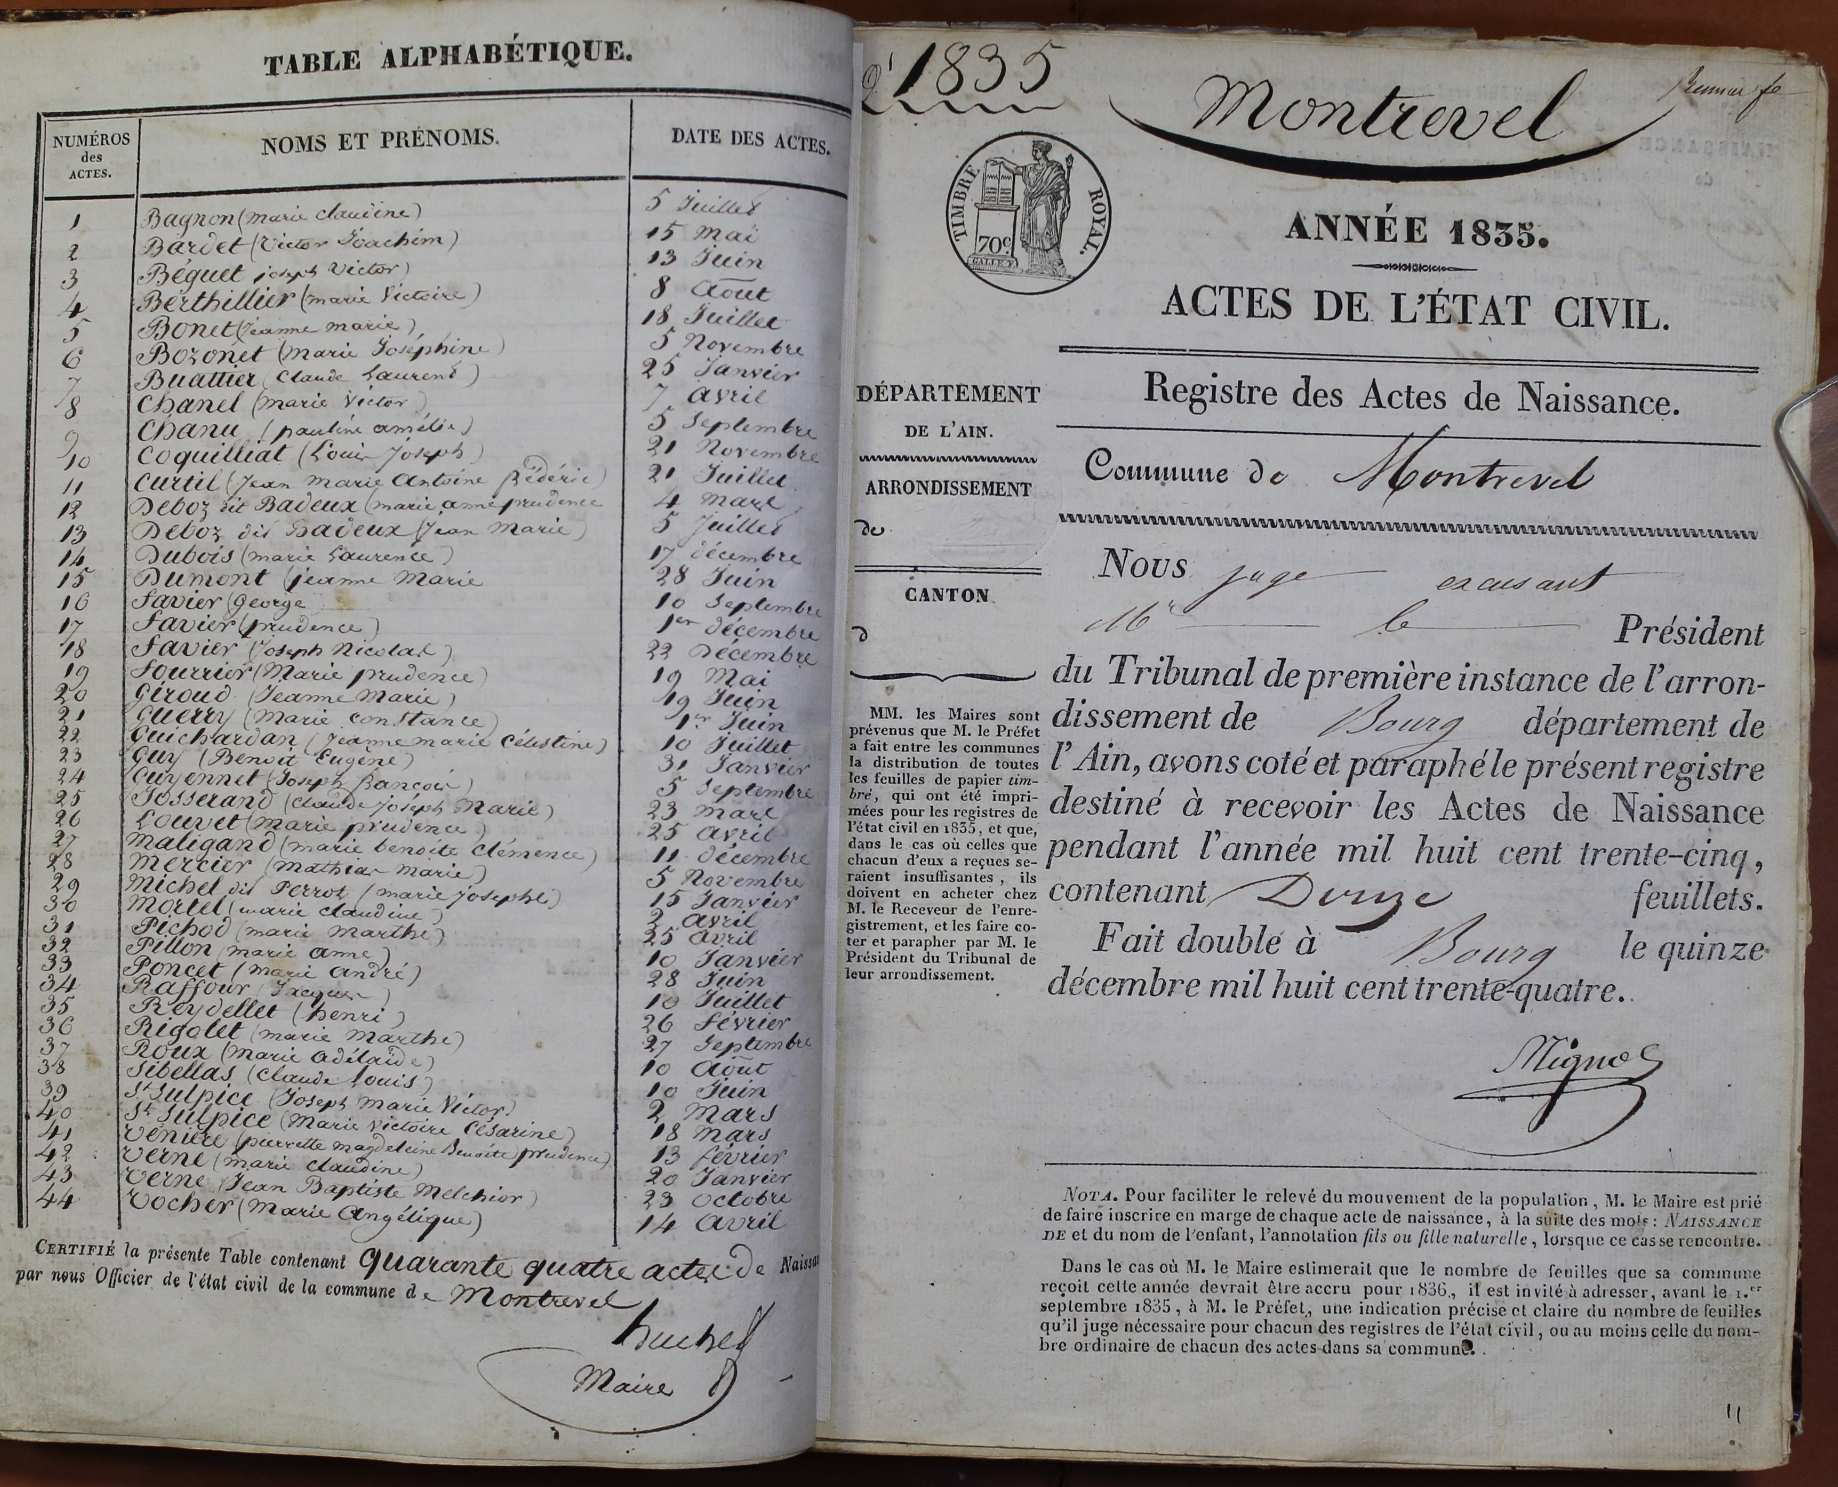 TABLE ALPHABÉTIQUE.
NUMÉROS des ACTES. NOMS ET PRÉNOMS. DATE DES ACTES.
1 Bagnon (marie claudine) 5 Juillet
2 Bardet (victor Joachim) 15 mai
3 Béguet joseph victor) 13 Juin
4 Berthillier (marie victoire) 8 Aout
5 Bonet (jeanne marie) 18 Juillet
6 Bozonet (marie Joséphine) 5 Novembre
7 Buattier (claude Laurent) 25 Janvier
8 Chanel (marie victor) 7 avril
9 Chanu (pauline amélie) 5 Septembre
10 Coquilliat (Louis Joseph) 21 Novembre
11 Curtil (Jean marie Antoine frédéric) 21 Juillet
12 Deboz dit Badeux (marie anne prudence 4 mars
13 Deboz dit Badeux (Jean Marie) 5 Juillet
14 Dubois (marie Laurence) 17 décembre
15 Dumont (jeanne Marie 28 Juin
16 favier (george) 10 Septembre
17 favier (prudence) 1er décembre
18 favier (joseph Nicolas) 22 Décembre
19 fourrier (Marie prudence) 19 Mai
20 Giroud (Jeanne Marie) 19 Juin
21 Guerry (Marie constance) 1er Juin
22 Guichardan (Jeanne marie Célestine) 10 Juillet
23 Guy (Benoit Eugène) 31 Janvier
24 Guyennet (Joseph françois) 5 Septembre
25 Josserand (claude joseph Marie) 23 mars
26 Louvet (marie prudence) 25 avril
27 Maligand (marie benoite clémence) 11 décembre
28 Mercier (mathias marie) 5 Novembre
29 Michel dit Perroz (marie josephe) 15 Janvier
30 Mortel (marie claudine) 2 avril
31 Pichod (marie marthe) 25 avril
32 Pillon (marie anne) 10 Janvier
33 Poncet (marie andré) 28 Juin
34 Raffour (Jacques) 10 Juillet
35 Reydellet (henri) 26 février
36 Rigolet (marie marthe) 27 Septembre
37 Roux (marie adélaïde) 10 Août
38 Sibellas (claude Louis) 10 Juin
39 St Sulpice (Joseph marie Victor) 2 Mars
40 St Sulpice (Marie victoire Césarine) 18 Mars
41 Venière (pierrette magdeleine Benoite prudence) 13 février
42 Verne (marie claudine) 20 Janvier
43 Verne (Jean Baptiste Melchior) 23 octobre
44 Vocher (Marie Angélique) 14 avril
CERTIFIÉ la présente Table contenant quarante quatre actes de Naissa
par nous Officier de l'état civil de la commune de Montrevel
huchet
Maire
1835
Montrevel
premier fe
TIMBRE ROYAL.
70c
ANNÉE 1835.
ACTES DE L'ÉTAT CIVIL.
Registre des Actes de Naissance.
Commune de Montrevel
DÉPARTEMENT
DE L'AIN.
ARRONDISSEMENT
de
CANTON
d
MM. les Maires sont
prévenus que M. le Préfet
a fait entre les communes
la distribution de toutes
les feuilles de papier tim-
bré, qui ont été impri-
mées pour les registres de
l'état civil en 1835, et que,
dans le cas où celles que
chacun d'eux a reçues se-
raient insuffisantes, ils
doivent en acheter chez
M. le Receveur de l'enre-
gistrement, et les faire co-
ter et parapher par M. le
Président du Tribunal de
leur arrondissement.
Nous juge excusant
Mr le Président
du Tribunal de première instance de l'arron-
dissement de Bourg département de
l'Ain, avons coté et paraphé le présent registre
destiné à recevoir les Actes de Naissance
pendant l'année mil huit cent trente-cinq,
contenant Douze feuillets.
Fait double à Bourg le quinze
décembre mil huit cent trente-quatre.
NOTA. Pour faciliter le relevé du mouvement de la population, M. le Maire est prié
de faire inscrire en marge de chaque acte de naissance, à la suite des mots: NAISSANCE
DE et du nom de l'enfant, l'annotation fils ou fille naturelle, lorsque ce cas se rencontre.
Dans le cas où M. le Maire estimerait que le nombre de feuilles que sa commune
reçoit cette année devrait être accru pour 1836, il est invité à adresser, avant le 1.er
septembre 1835, à M. le Préfet, une indication précise et claire du nombre de feuilles
qu'il juge nécessaire pour chacun des registres de l'état civil, ou au moins celle du nom-
bre ordinaire de chacun des actes dans sa commune.